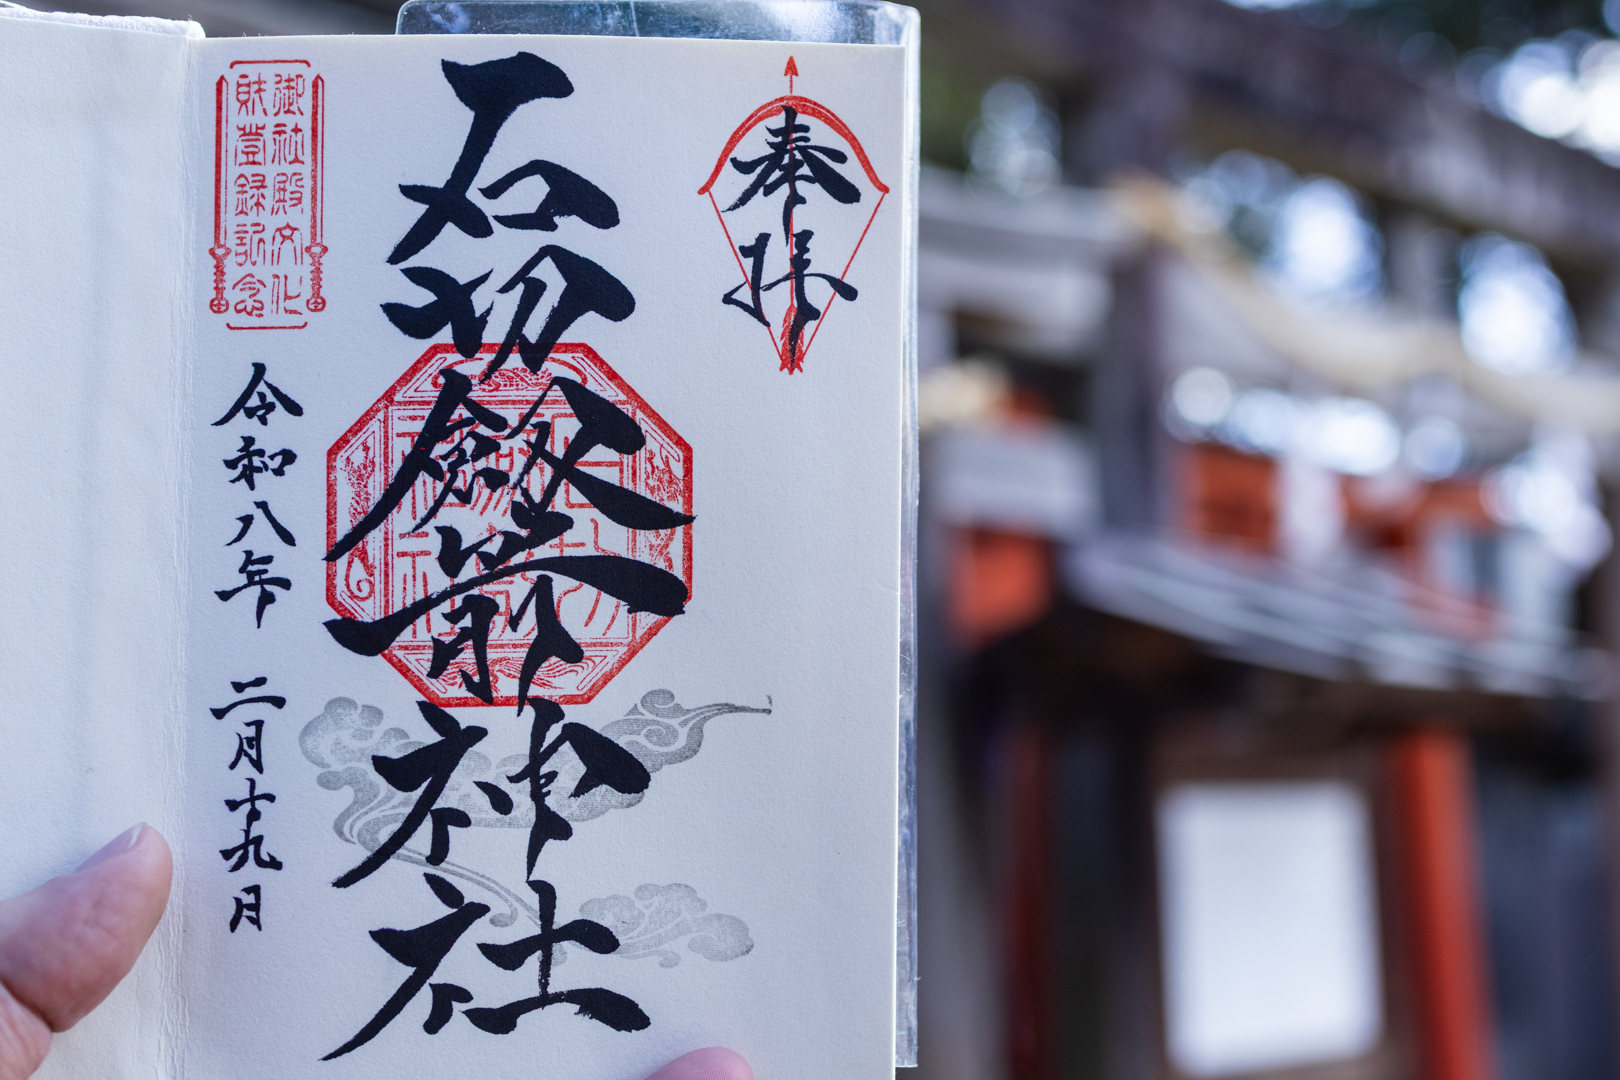 奉拝
石切劔箭神社
御社殿文化
財登録記念
令和八年 二月十九日